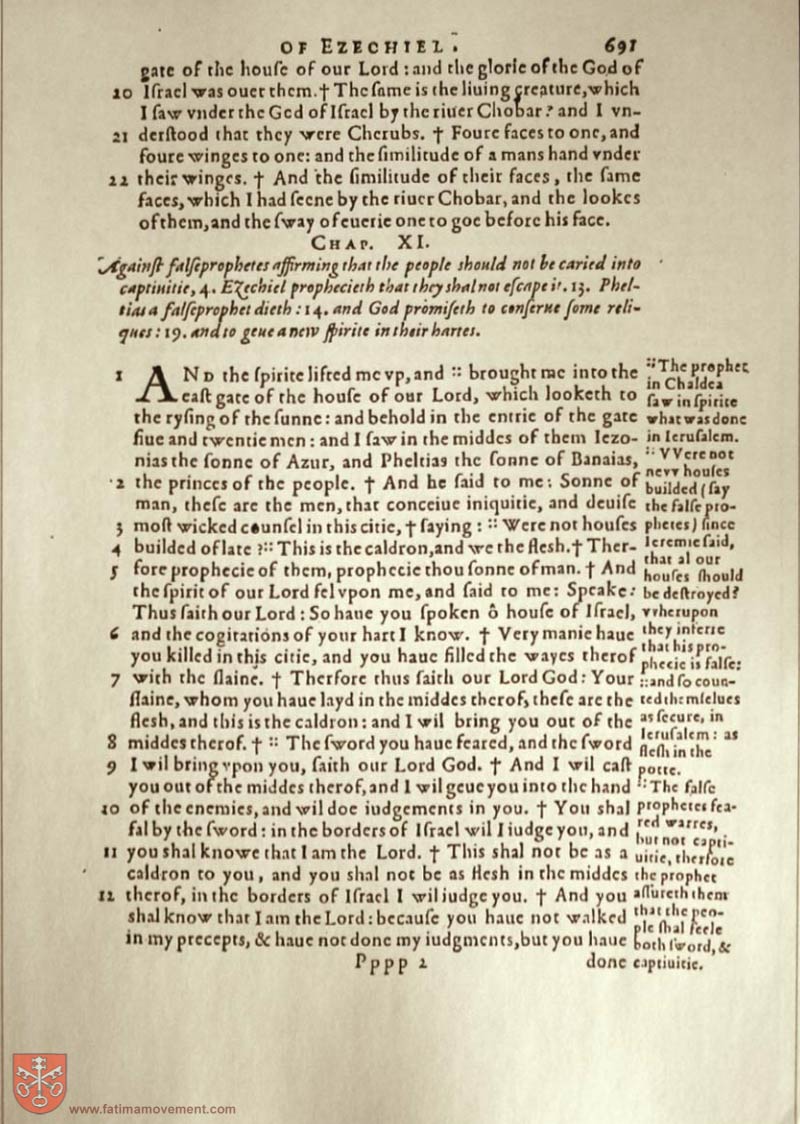 OF EZECHIEL. 691
gate of the houſe of our Lord: and the glorie of the God of
20 Iſrael was ouer them. † The ſame is the liuing creature, which
I ſaw vnder the God of Iſrael by the riuer Chobar: and I vn-
21 derſtood that they were Cherubs. † Foure faces to one, and
foure winges to one: and the ſimilitude of a mans hand vnder
22 their winges. † And the ſimilitude of their faces, the ſame
faces, which I had ſeene by the riuer Chobar, and the lookes
of them, and the ſway of euerie one to goe before his face.
CHAP. XI.
Againſt falſeprophetes affirming that the people should not be caried into
captiuitie, 4. Ezechiel prophecieth that they shal not eſcape it. 13. Phel-
tias a falſeprophet dieth: 14. and God promiſeth to conſerue ſome reli-
ques: 19. and to geue a new ſpirite in their hartes.
1 AND the ſpirite lifted me vp, and :: brought me into the
eaſt gate of the houſe of our Lord, which looketh to
the ryſing of the ſunne: and behold in the entrie of the gate
fiue and twentie men: and I ſaw in the middes of them Iezo-
nias the ſonne of Azur, and Pheltias the ſonne of Banaias,
2 the princes of the people. † And he ſaid to me: Sonne of
man, theſe are the men, that conceiue iniquitie, and deuiſe
3 moſt wicked counſel in this citie, † ſaying: :: Were not houſes
4 builded of late? :: This is the caldron, and we the fleſh. † Ther-
5 fore prophecie of them, prophecie thou ſonne of man. † And
the ſpirit of our Lord fel vpon me, and ſaid to me: Speake:
Thus ſaith our Lord: So haue you ſpoken ô houſe of Iſrael,
6 and the cogitations of your hart I know. † Very manie haue
you killed in this citie, and you haue filled the wayes therof
7 with the ſlaine. † Therfore thus ſaith our Lord God: Your
ſlaine, whom you haue layd in the middes therof, theſe are the
fleſh, and this is the caldron: and I wil bring you out of the
8 middes therof. † :: The ſword you haue feared, and the ſword
9 I wil bring vpon you, ſaith our Lord God. † And I wil caſt
you out of the middes therof, and I wil geue you into the hand
10 of the enemies, and wil doe iudgements in you. † You shal
fal by the ſword: in the borders of Iſrael wil I iudge you, and
11 you shal knowe that I am the Lord. † This shal not be as a
caldron to you, and you shal not be as fleſh in the middes
12 therof, in the borders of Iſrael I wil iudge you. † And you
shal know that I am the Lord: becauſe you haue not walked
in my precepts, & haue not done my iudgments, but you haue
Pppp 2 done
:: The prophet
in Chaldea
ſaw in ſpirite
what was done
in Ieruſalem.
:: VVere not
nevv houſes
builded (ſay
the falſe pro-
phetes) ſince
Ieremie ſaid,
that al our
houſes ſhould
be deſtroyed?
vvherupon
they inferre
that his pro-
phecie is falſe:
:: and ſo coun-
ted themſelues
as ſecure, in
Ieruſalem: as
fleſh in the
potte.
:: The falſe
prophetes fea-
red warres,
but not capti-
uitie, therfore
the prophet
aſſureth them
that the peo-
ple ſhal feele
both ſword, &
captiuitie.
www.fatimamovement.com